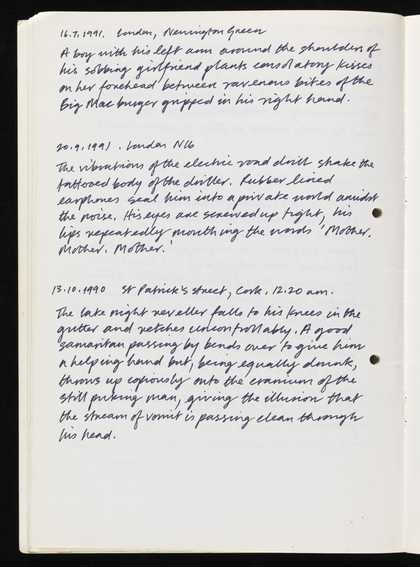 16.7.1991. London, Newington Green
A boy with his left arm around the shoulders of
his sobbing girlfriend plants consolatory kisses
on her forehead between ravenous bites of the
Big Mac burger gripped in his right hand.
20.9.1991. London N16
The vibrations of the electric road drill shake the
tattooed body of the driller. Rubber lined
earphones seal him into a private world amidst
the noise. His eyes are screwed up tight, his
lips repeatedly mouthing the words 'Mother.
Mother. Mother.'
13.10.1990 St Patrick's street, Cork, 12.20 am.
The late night reveller falls to his knees in the
gutter and retches uncontrollably. A good
samaritan passing by bends over to give him
a helping hand but, being equally drunk,
throws up copiously onto the cranium of the
still puking man, giving the illusion that
the stream of vomit is passing clean through
his head.